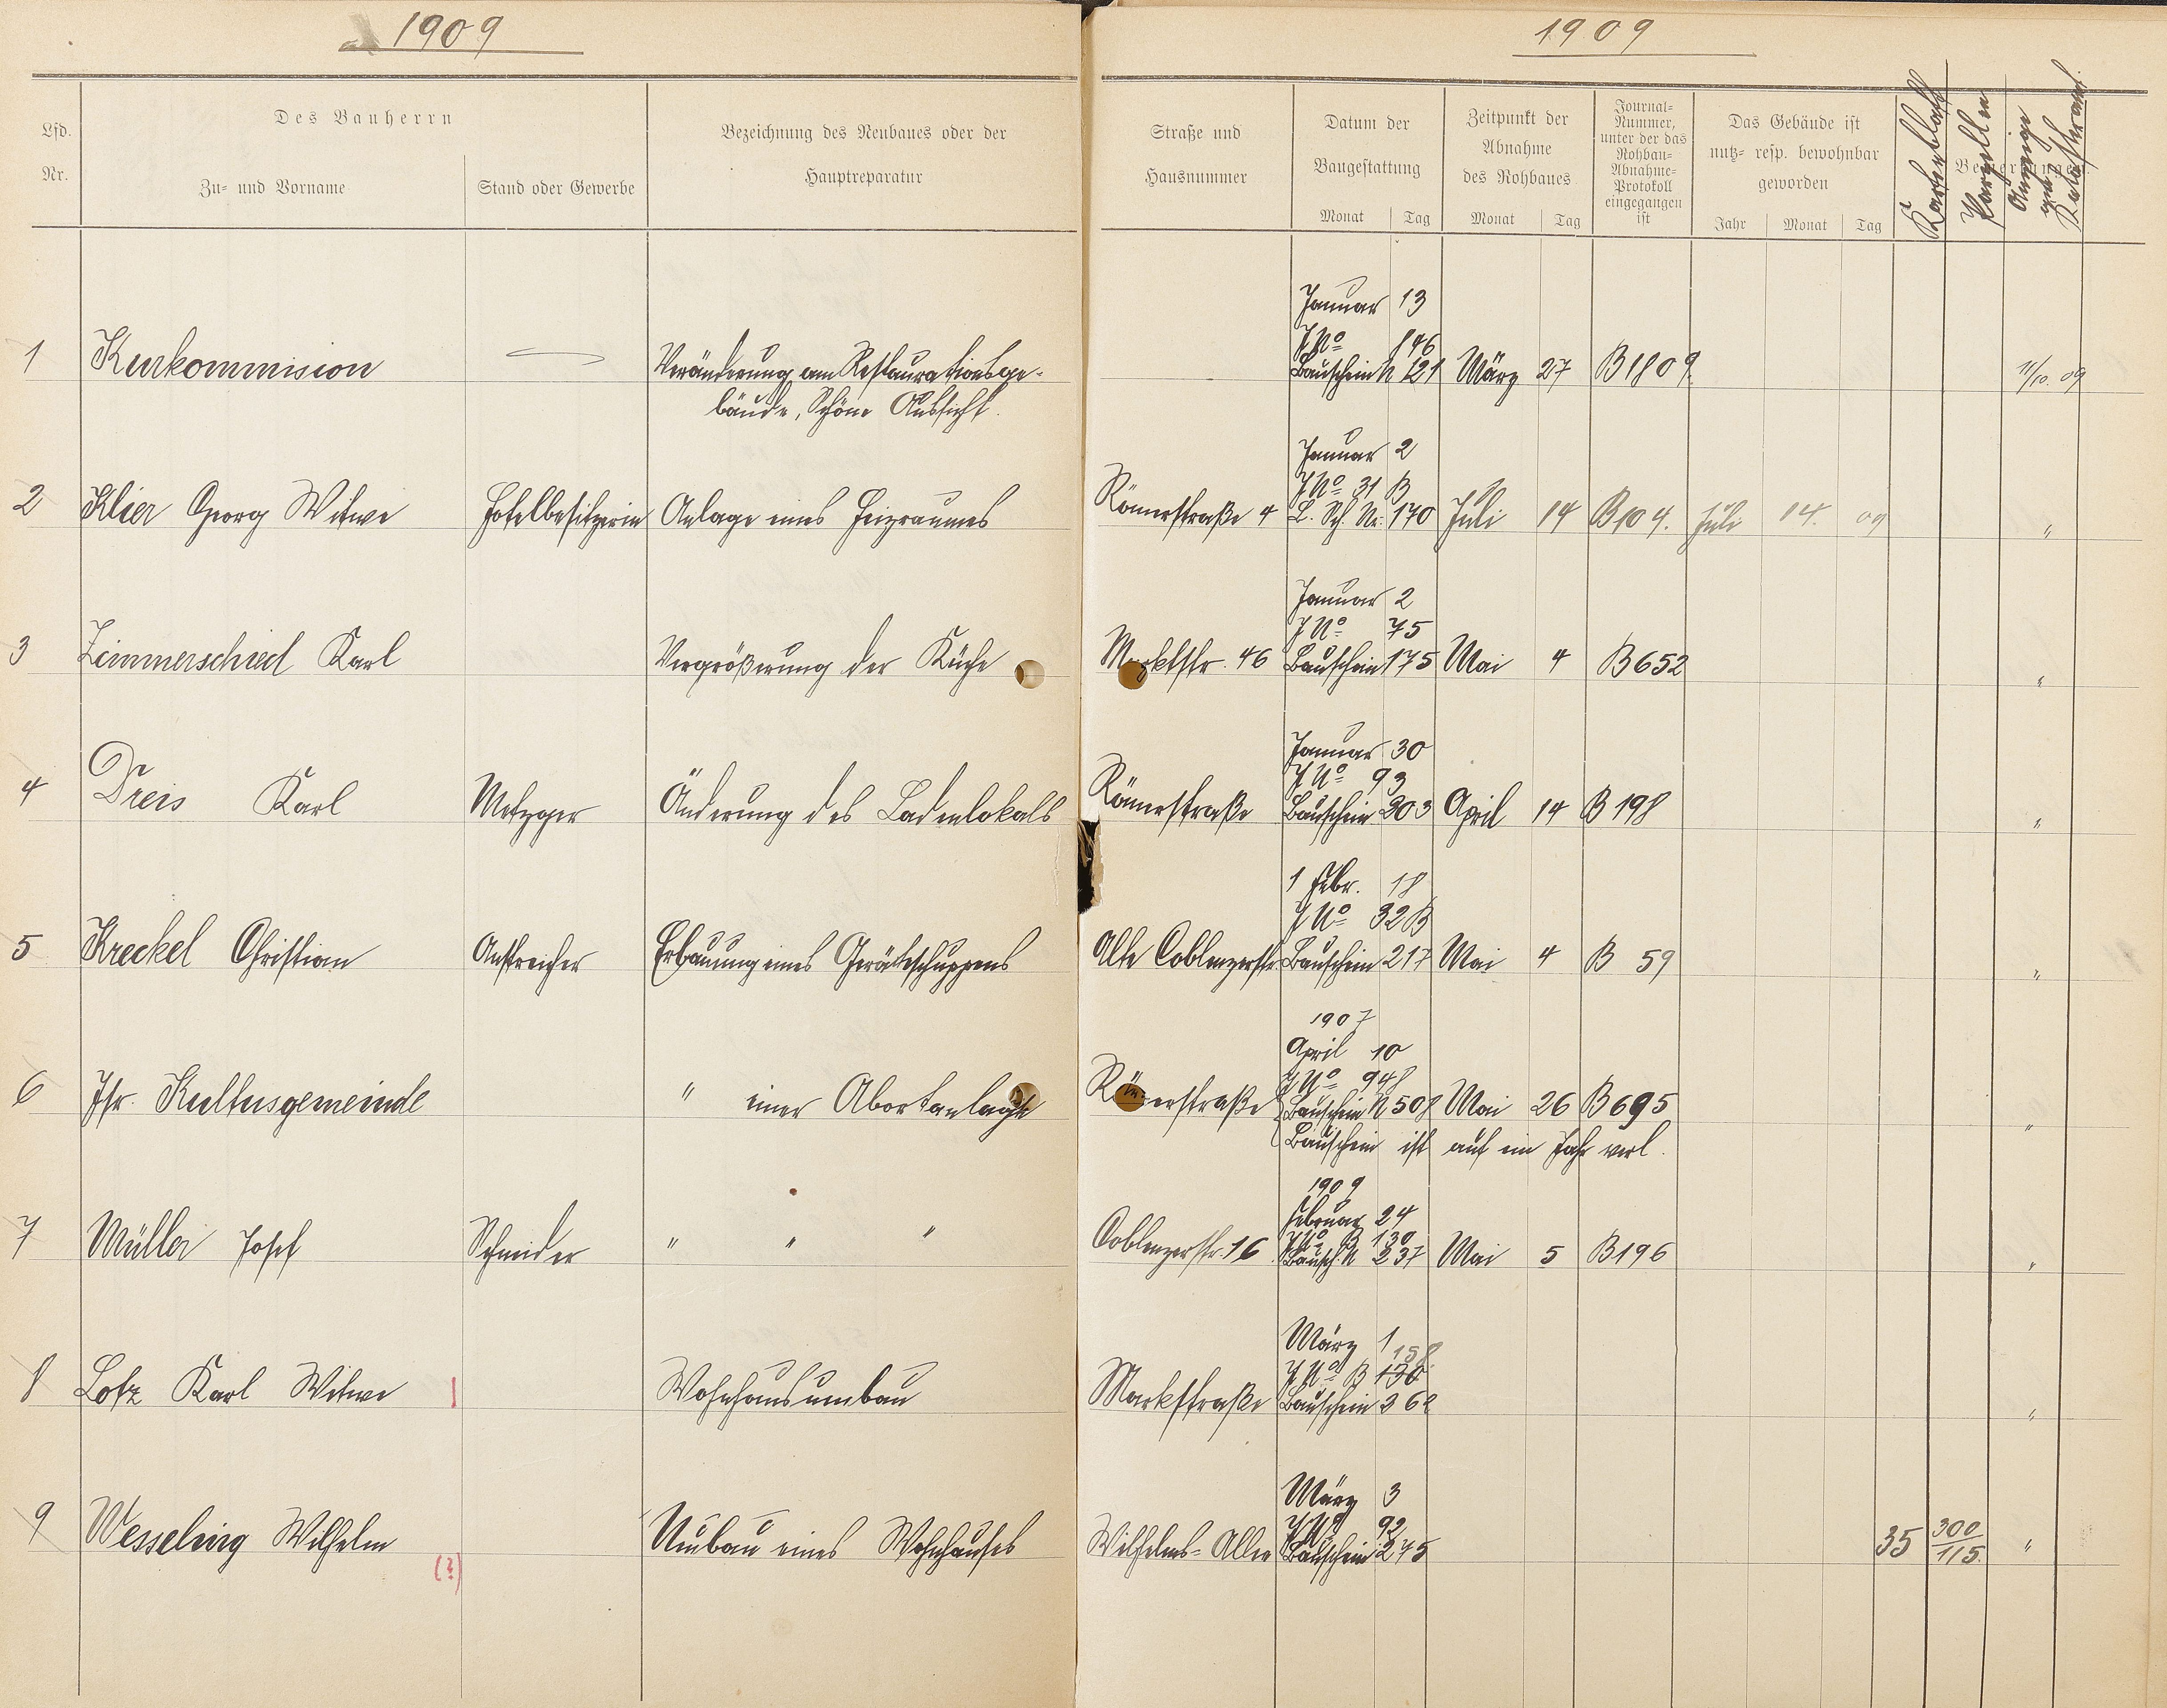 1909
1909
Lfd.
Nr.
Des Bauherrn
Zu- und Vorname
Stand oder Gewerbe
Bezeichnung des Neubaues oder der
Hauptreparatur
Straße und
Hausnummer
Datum der
Baugestattung
Monat Tag
Zeitpunkt der
Abnahme
des Rohbaues
Monat Tag
Journal-
Nummer,
unter der das
Rohbau-
Abnahme-
Protokoll
eingegangen
ist
Das Gebäude ist
nutz- resp. bewohnbar
geworden
Jahr Monat Tag
Bemerkungen.
Kartenblatt
Parzellen
Anzeige
Katasteramt
Januar 13
J No 846
1 Kurkommision Veränderung am Restaurationsge- Bauschein N 121 März 27 B 1809 11/10. 09
bäude, Schöne Aussicht.
Januar 2
J No 31 B
2 Klier Georg Witwe Hotelbesitzerin Anlage eines Heizraumes Römerstraße 4 B. Sch. Nr. 170 Juli 14 B 104. Juli 14. 09 "
Januar 2
J No 75
3 Zimmerschied Karl Vergrößerung der Küche Marktstr. 46 Bauschein 175 Mai 4 B 652 "
Januar 30
J No 93
4 Dreis Karl Metzger Änderung des Ladenlokals Römerstraße Bauschein 203 April 14 B 198 "
1 Febr. 18
J No 32 B
5 Kreckel Christian Anstreicher Erbauung eines Geräteschuppens Alte Coblenzerstr. Bauschein 217 Mai 4 B 59 "
1907
April 10
J No 948
6 Isr. Kultusgemeinde " einer Abortanlage Römerstraße Bauschein N 508 Mai 26 B 695 "
Bauschein ist auf ein Jahr verl.
1909
Februar 24
J No B 130
7 Müller Josef Schneider " " " Coblenzerstr. 16 Bausch. N 237 Mai 5 B 196 "
März 1
158
J No B 130
8 Lotz Karl Witwe Wohnhausumbau Marktstraße Bauschein 362 "
März 3
J No 92
9 Wesseling Wilhelm (?) Umbau eines Wohnhauses Wilhelms-Allee Bauschein 275 35 300/115. "